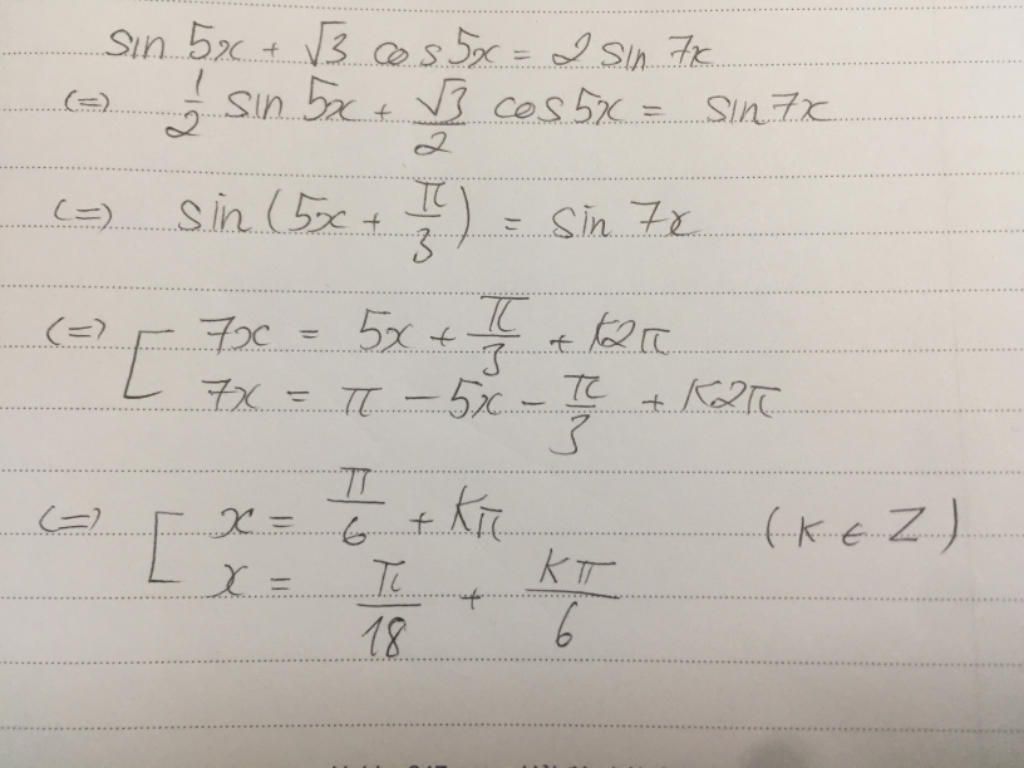 sin 5x + √3 cos 5x = 2 sin 7x
(=) 1/2 sin 5x + √3/2 cos 5x = sin 7x
(=) sin (5x + π/3) = sin 7x
(=) [ 7x = 5x + π/3 + K2π
7x = π - 5x - π/3 + K2π
(=) [ x = π/6 + Kπ (K ∈ Z)
x = π/18 + Kπ/6